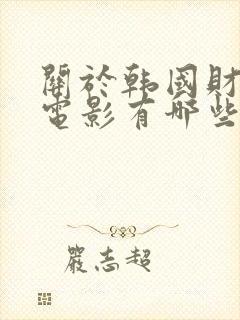 關於韩國財
電影有哪些
嚴志超